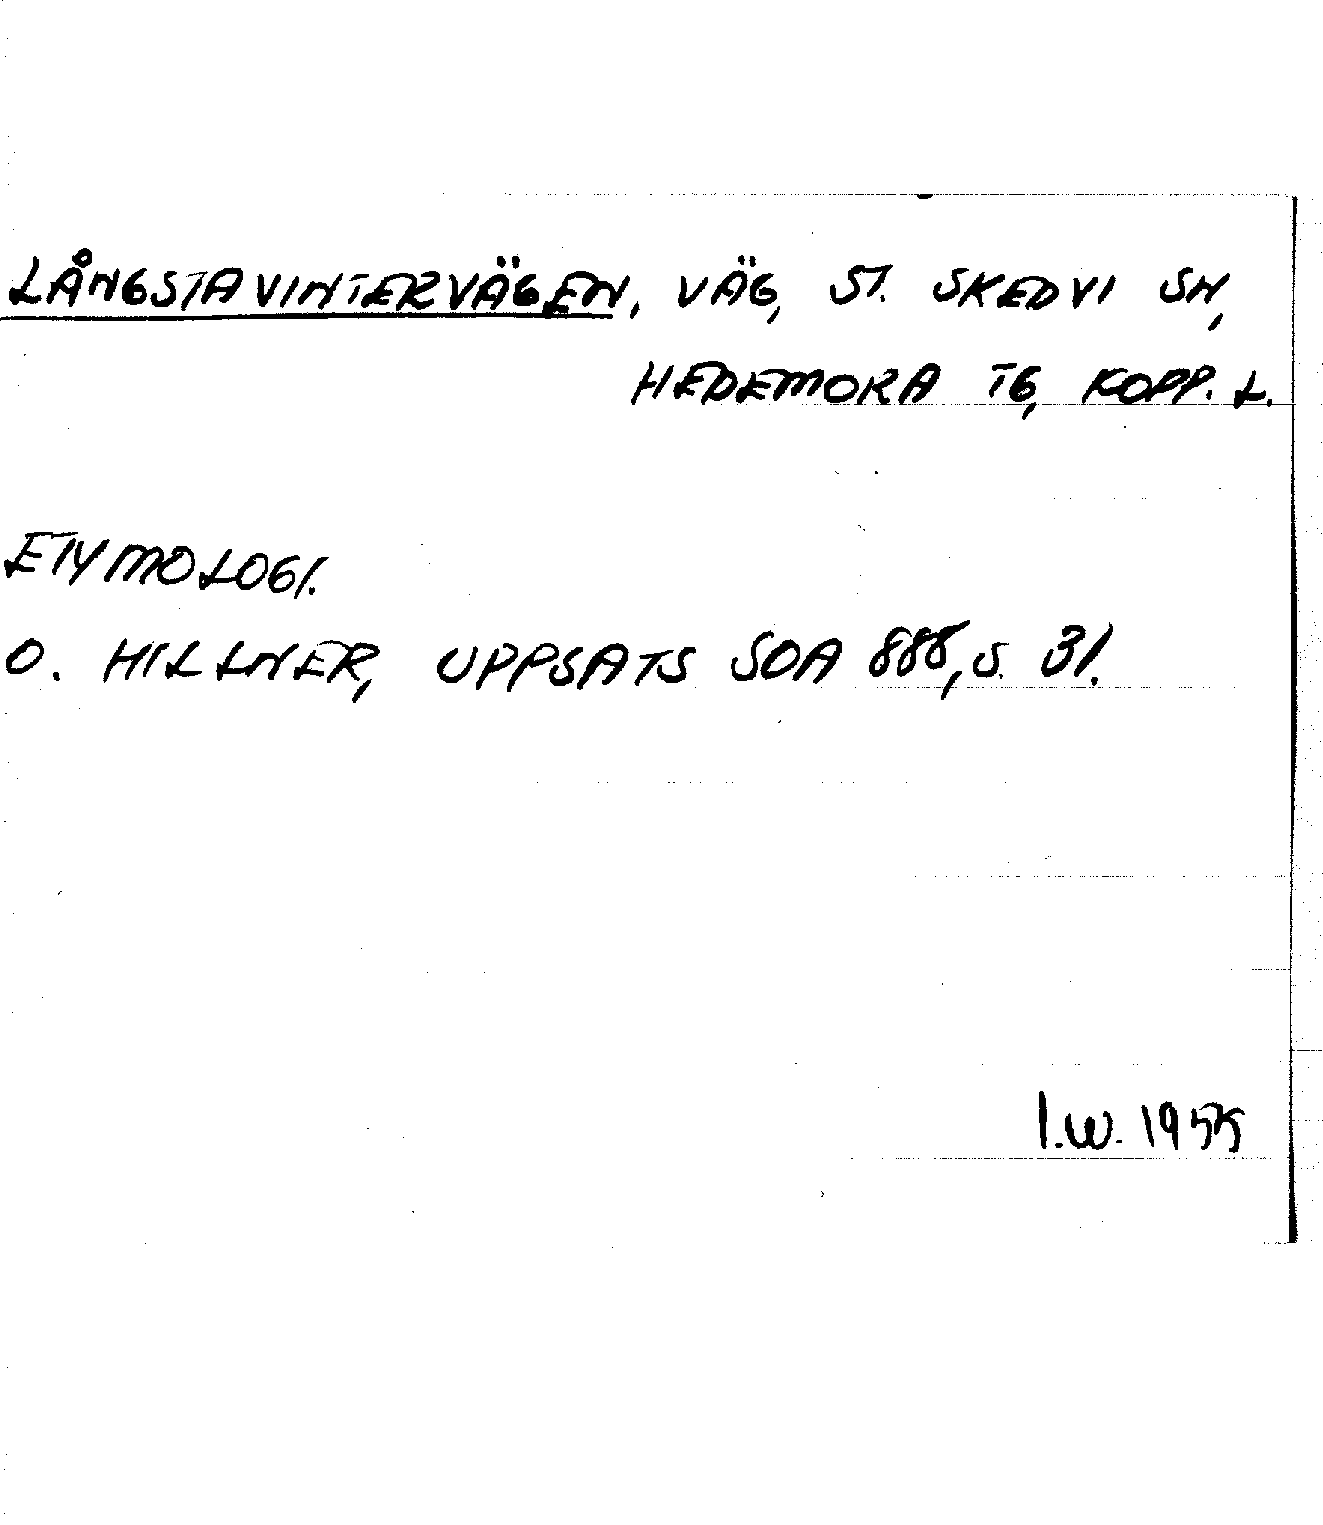 LÅNGSTAVINTERVÄGEN, VÄG, ST. SKEDVI SN,
HEDEMORA TG, KOPP. L.
ETYMOLOGI.
O. HILLNER, UPPSATS SOA 888, S. 31.
I.W. 1955